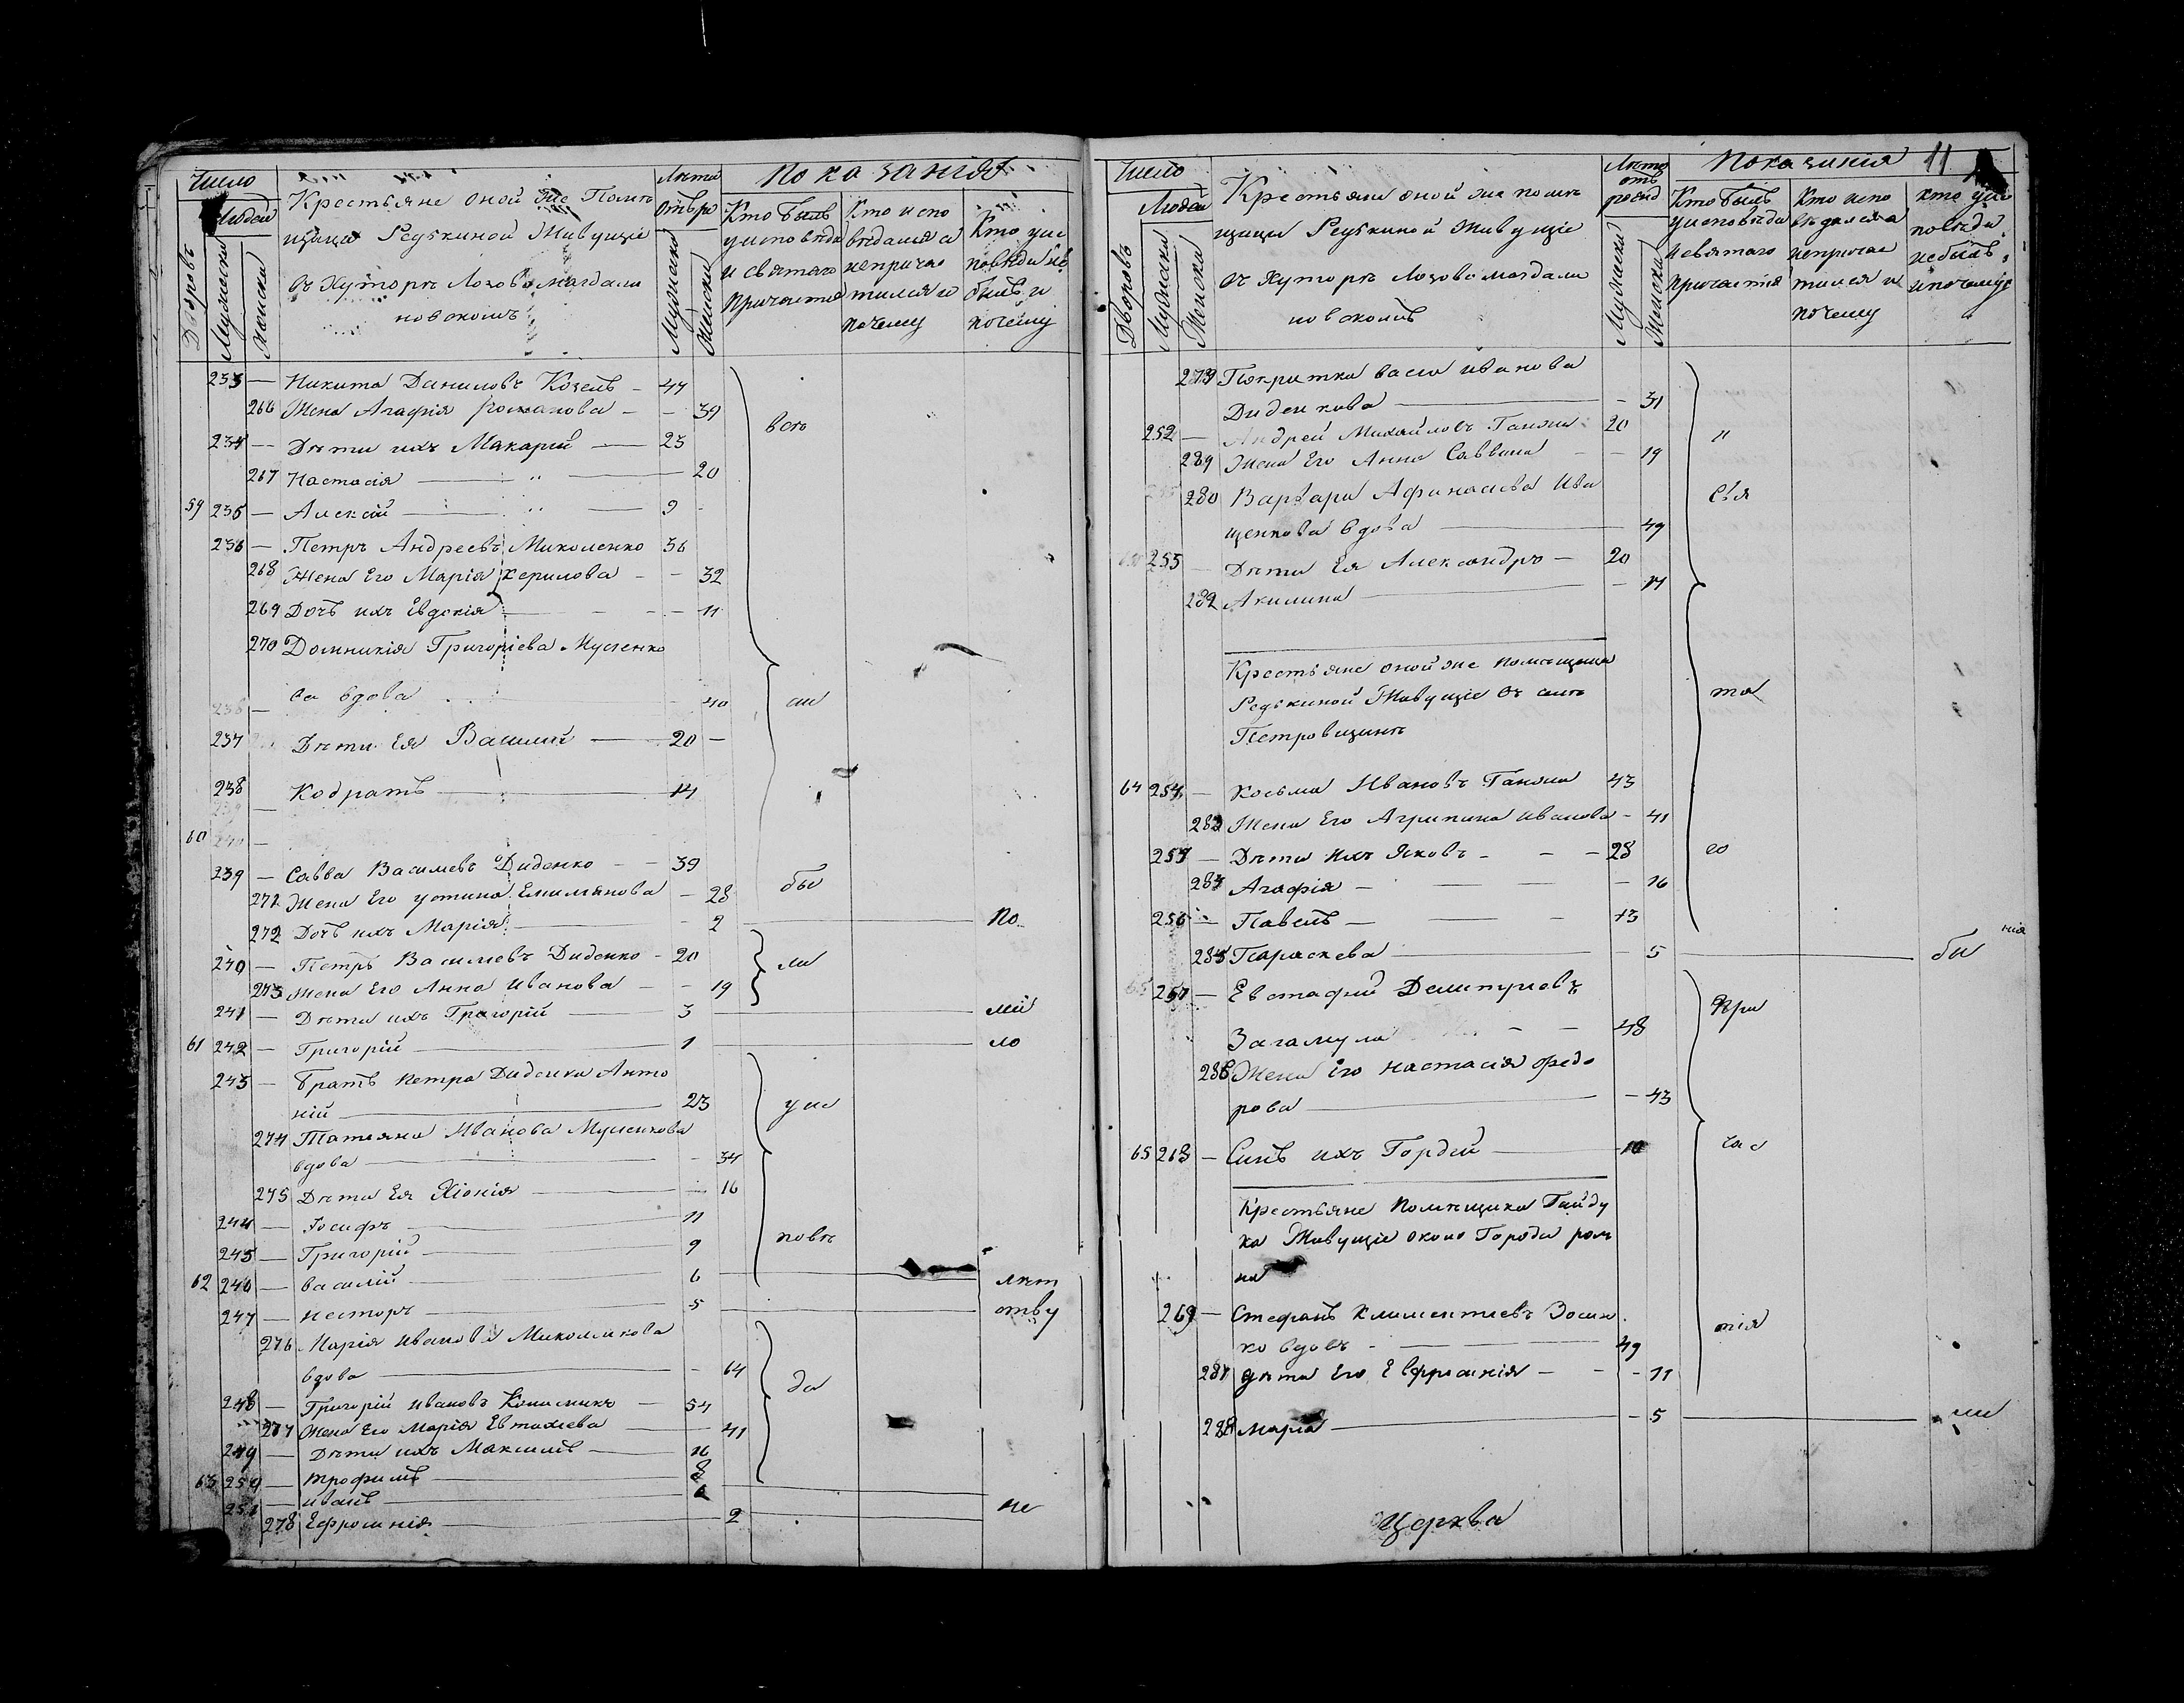 Число
Людей
Дворовъ
Мужески
Женски
Крестьяне оной же Помѣ
щици Редькиной Живущіе
въ Хуторѣ Лозово магдали
новскомъ
Лѣта
Мужеска
Женска
Показанія
Кто былъ
у исповѣди
и святаго
причастія
Кто испо
вѣдался а
непричас
тился и
почему
Кто у ис
повѣди не
былъ и
почему
233 — Никита Даниловъ Козелъ - 44
266 Жена Агафія Романова - - 39
всѣ
234 — Дѣти ихъ Макарій — 23
267 Настасія — 20
59 235 — Алексѣй — 9
236 — Петръ Андреевъ Миколенко 36
268 Жена Его Марія Керилова - - 32
269 Дочь ихъ Евдокія - - 11
270 Домникія Григоріева Мусіенко
ва вдова 40
сіи
237 Дѣти Ея Василій — 20 —
238 Кодратъ — 14
60
239 — Савва Василіевъ Диденко - - 39
271 Жена Его Устина Емиліянова - 28
бы
272 Дочь ихъ Марія - 2 По
240 — Петръ Василіевъ Диденко - 20
ли
273 Жена Его Анна Иванова - - 19
241 — Дѣти ихъ Григорій — 3 мѣ
61 242 — Григорій — 1 ло
243 — Братъ Петра Диденка Анто
ній — 23
у ис
274 Татіяна Иванова Мусіенкова
вдова — 34
275 Дѣти Ея Хіонія — 16
244 — Іосифъ — 11
245 — Григорій — 9
повѣ
62 246 — Василій — 6 лѣт
247 — Несторъ — 5 ству
276 Марія Иванова Миколенкова
вдова — 64
ди
248 — Григорій Ивановъ — 54
277 Жена Его Марія Евтихіева — 41
249 — Дѣти ихъ Максимъ — 16
63 250 — Трофимъ — 8
251 — Иванъ — 6
не
278 Ефросинія — 2
Число
Людей
Дворовъ
Мужески
Женски
Крестьяни оной же помѣ
щици Редькиной живущіе
въ Хуторѣ Лозово магдали
новскомъ
Лѣта
отъ
рожд
Мужески
Женски
Показанія 11
Кто былъ
у исповѣди
и святаго
причастія
Кто испо
вѣдался а
непричас
тился и
почему
кто у ис
повѣди
небылъ
и почему
279 Васса Иванова
Диденкова — - 31
252 — Андрей Михайловъ Ганжа 20
и
Жена Его Анна Саввина - - 19
280 Варвара Афанасіева Ива
щенкова вдова — 49
свя
253 Дѣти Ея Александръ — 20
282 Акилина — - 17
Крестьяне оной же помѣщици
Редькиной Живущіе въ селѣ
Петровщинѣ
та
64 254 — Косьма Ивановъ Ганжа 43
Жена Его Агрипина Иванова - 41
255 — Дѣти Ихъ Яковъ - - - 28
го
Агафія - — — 16
256 — Павелъ — — - 13
Параскева — - 5 бы
нія
257 — Евстафій Димитріевъ
- - 48
При
286 Жена Его Настасія Федо
рова — - 43
65 268 — Синъ ихъ Гордѣй — 10
час
Крестьяне Помѣщика Гайду
ка Живущіе около Города Ром
на
269 — Стефанъ Климентіевъ
ко вдовъ - — 49
тія
Дѣти Его Евфросинія — - - 11
Марія — - 5 ли
Церква